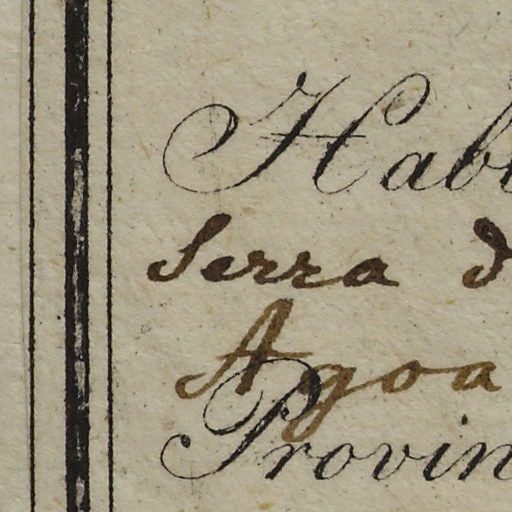 Hab
Serra d
Agoa
Provin